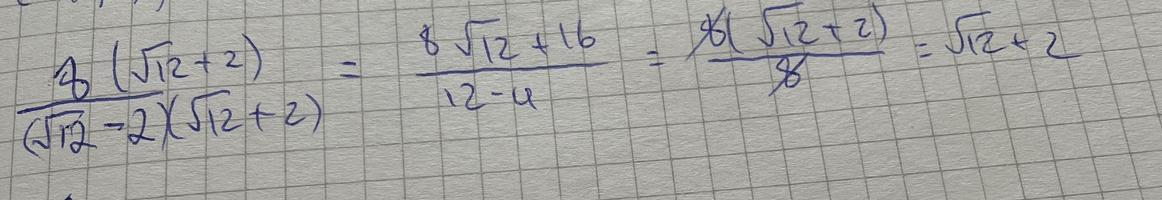 8(√12+2)/(√12-2)(√12+2) = 8√12+16/12-4 = 8(√12+2)/8 = √12+2